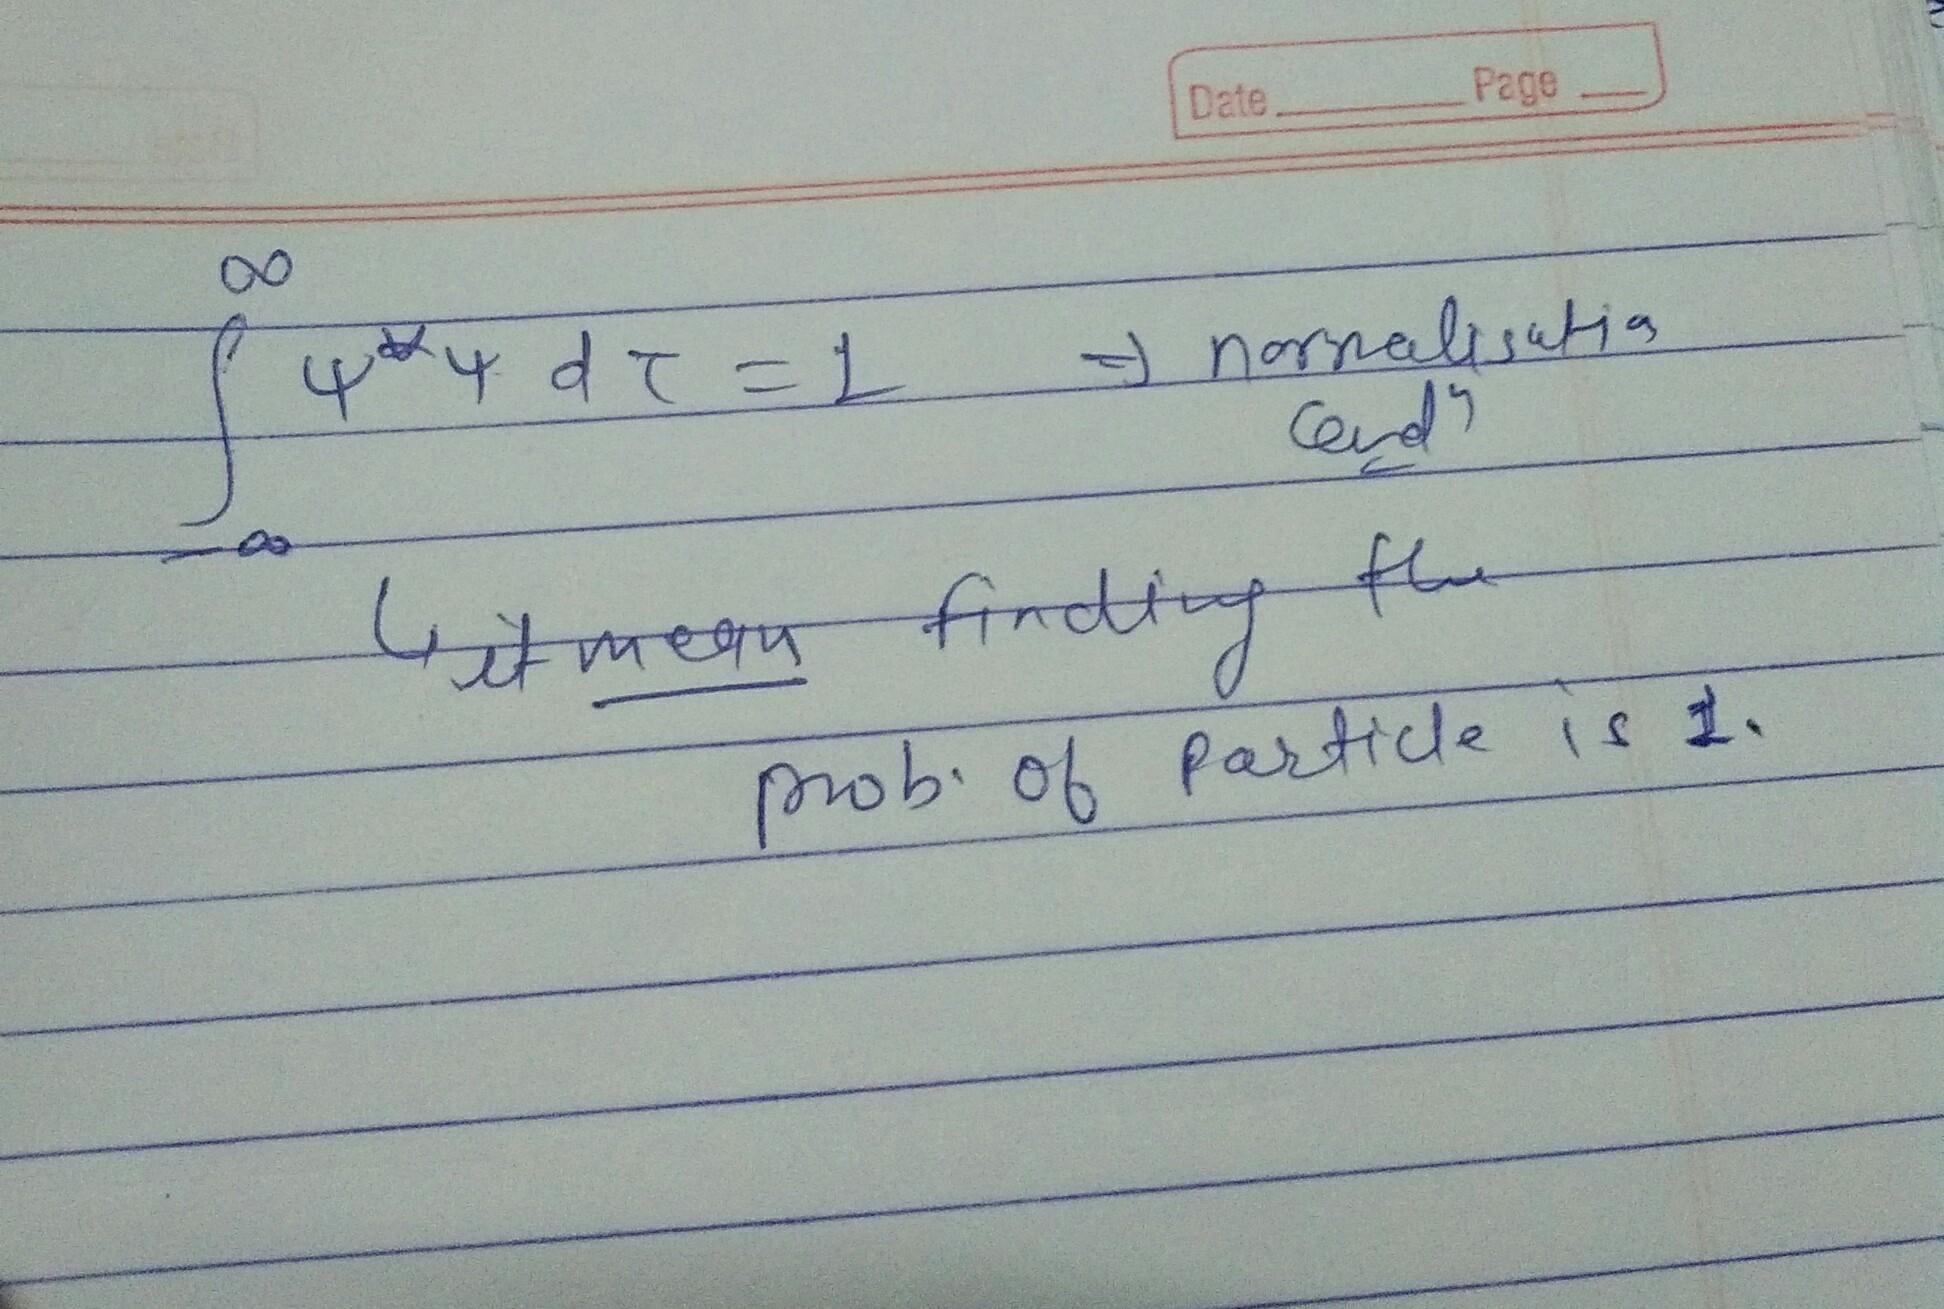 Date Page
∞
∫ ψ*ψ dτ = 1 ⇒ normalisation
condn
-∞
↳ it mean finding the
prob. of particle is 1.